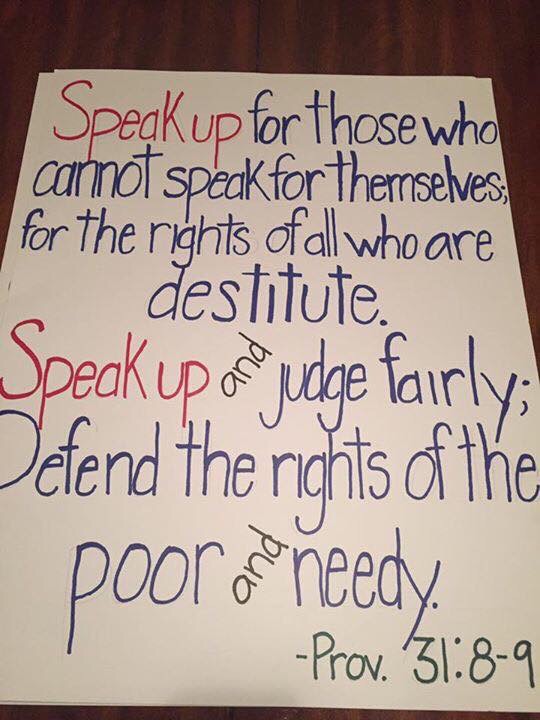 Speak up for those who
cannot speak for themselves;
for the rights of all who are
destitute.
Speak up and judge fairly;
Defend the rights of the
poor and needy.
-Prov. 31:8-9